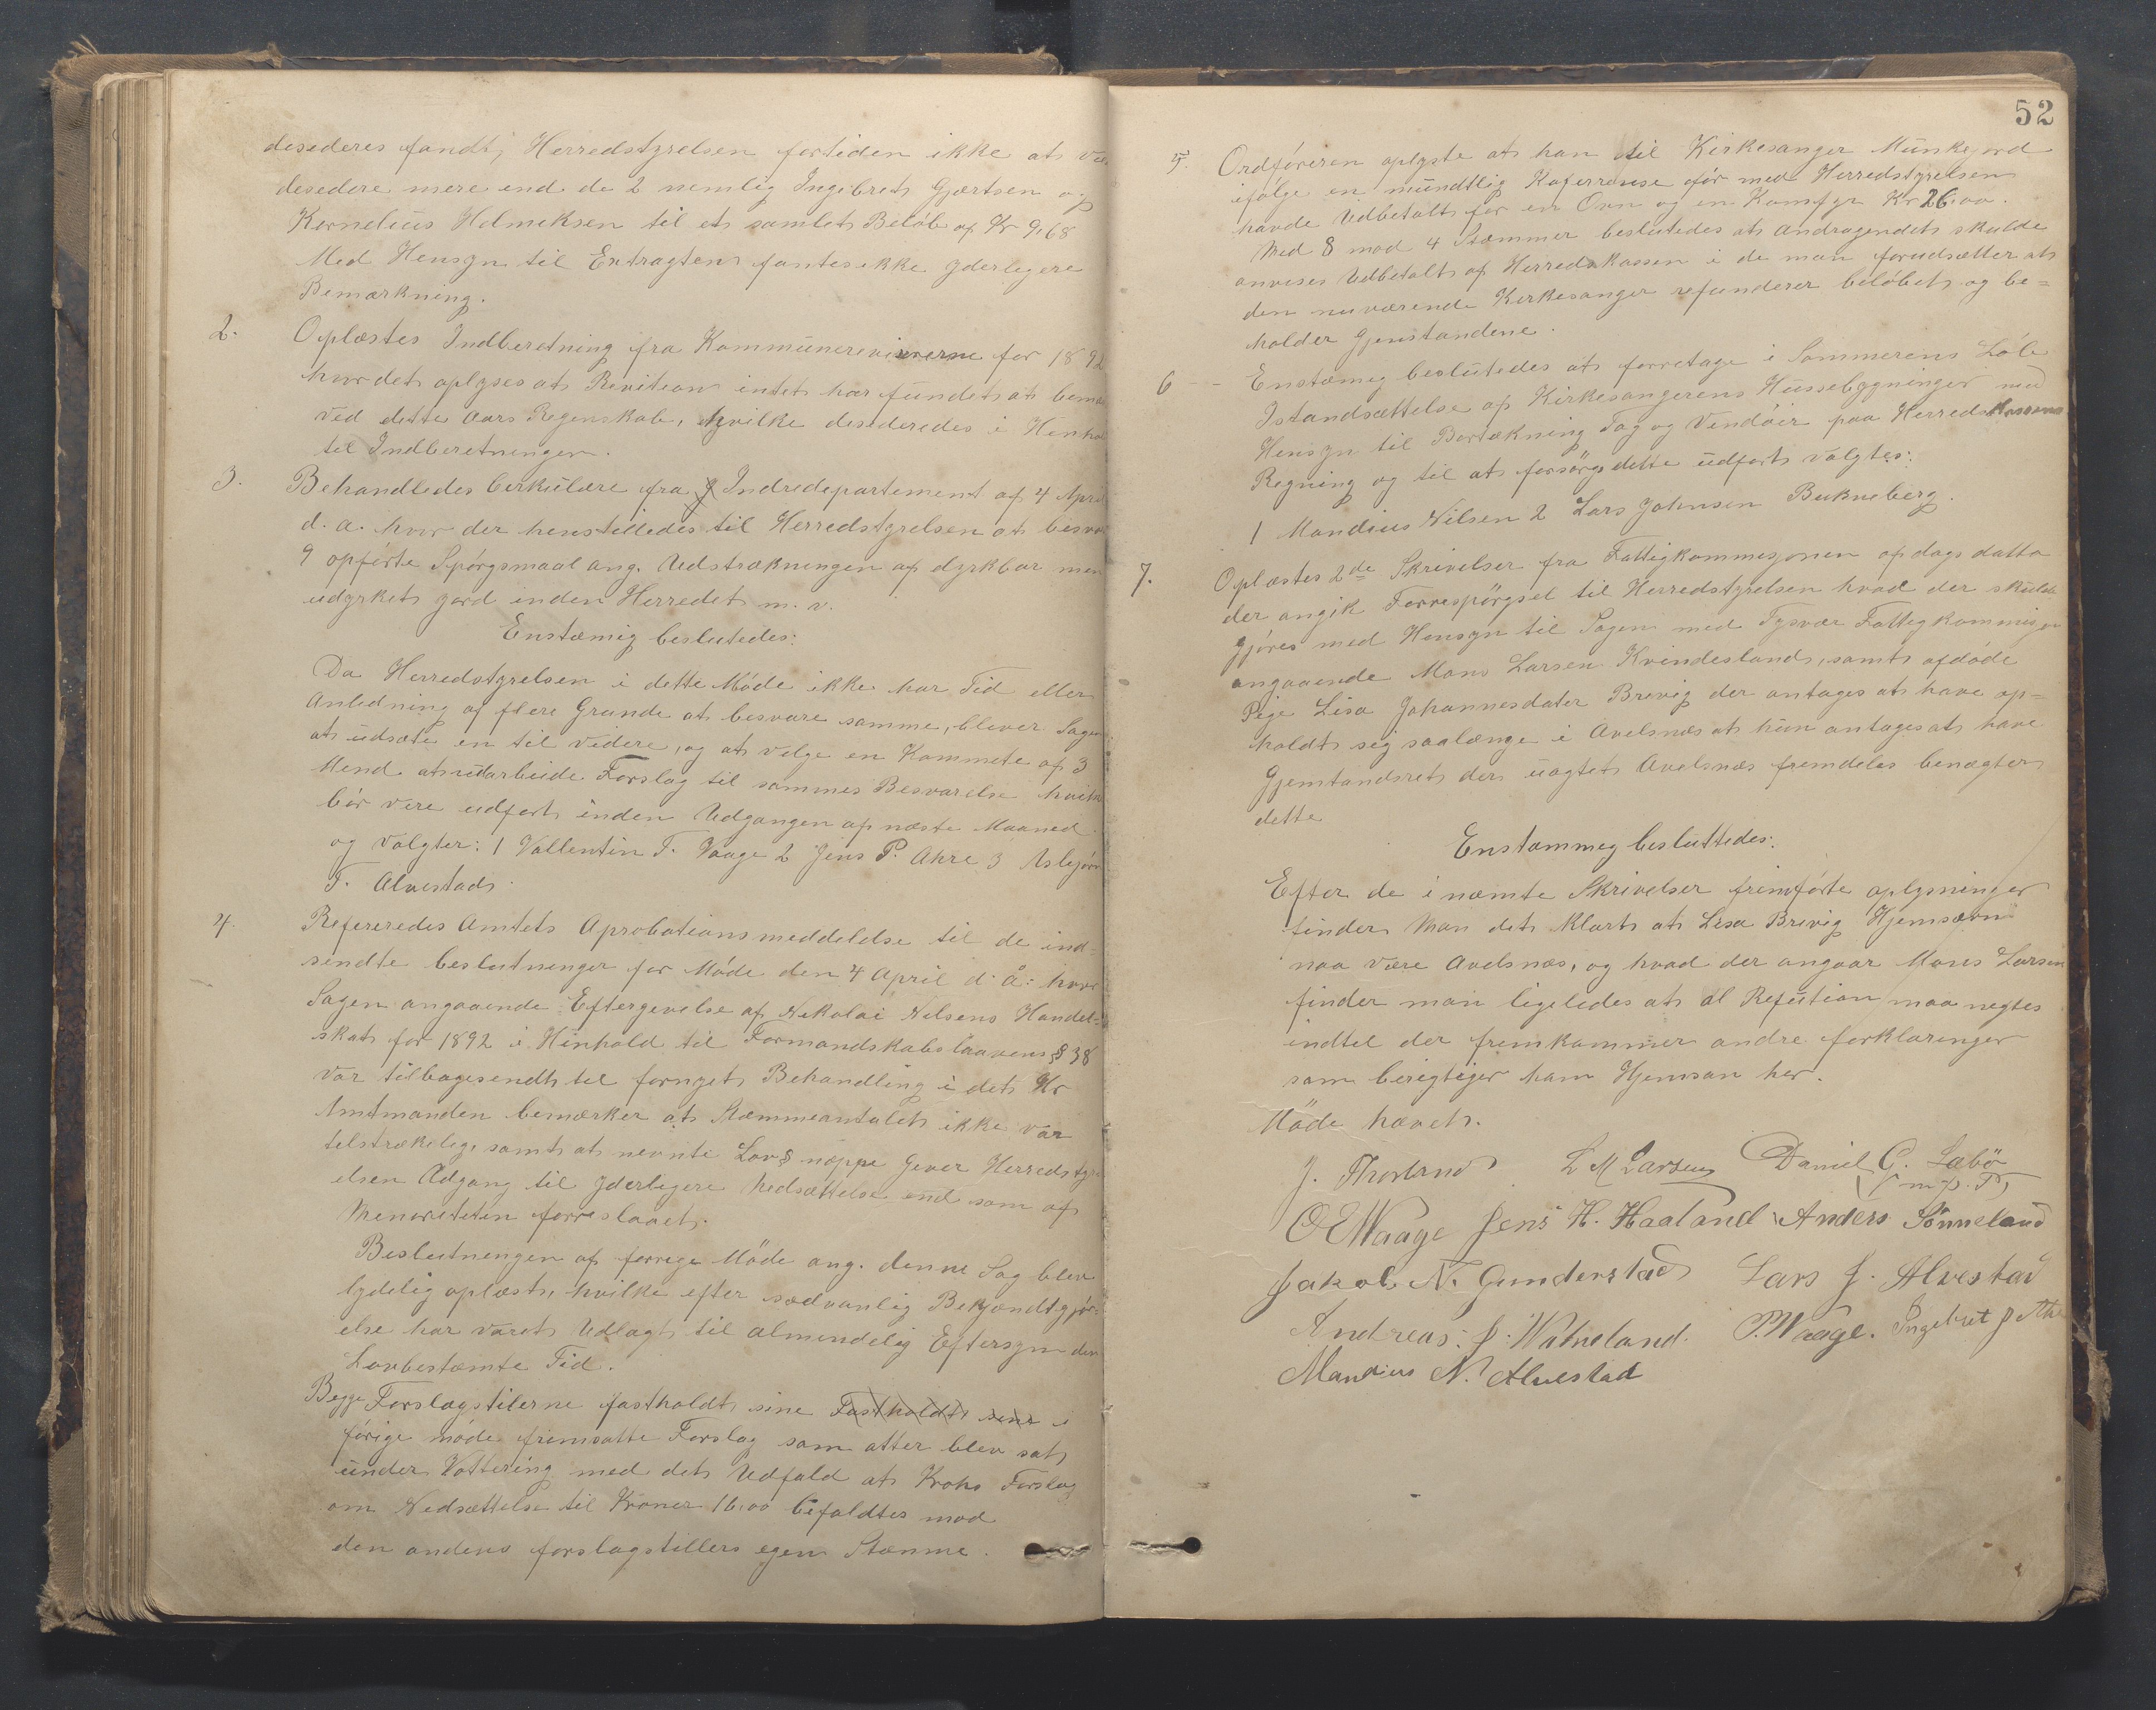 desederes fandt, Herredstyrelsen fortiden ikke at
desedere mere end de 2 nemlig Ingebret Gjærtsen og
Kornelius Helmeksen til et samlet Beløb af Kr 9,68
Med Hensyn til Extragten fantes ikke yderligere
Bemærkning.
2. Oplæstes Indberetning fra Kommunerevisorerne for 1892
hvor det oplyses at Revition intet har fundet at bemær
ved dette Aars Regenskab, hvilke desideredes i Henhol
til Indberetningen.
3. Behandledes Cerkulære fra Indredepartement af 4 April
d. a. hvor der henstilledes til Herredstyrelsen at besva
9 opførte Spørgsmaal ang. Udstrækningen af dyrkbar men
udyrket jord inden Herredet m. v.
Enstæmig beslutedes:
Da Herredstyrelsen i dette Møde ikke har Tid eller
Anledning af flere Grunde at besvare samme, blever Sagen
at udsæte en til videre, og at velge en Kommete af 3
Mend at udarbeide Forslag til sammes Besvarelse hvilke
bør vere udført inden Udgangen af næste Maaned.
og Valgter: 1 Vallentin T. Vaage 2 Jens P. Ahre 3 Asbjørn
T. Alvestad.
4. Refereredes Amtets Aprobations meddelelse til de ind-
sendte beslutninger for Møde den 4 April d. å: hvor
Sagen angaaende Eftergevelse af Nekolai Nelsens Handel-
skat for 1892 i Hinhold til Formandskabslaavens § 38
var tilbagesendt tel fornyet Behandling i det Hr
Amtmanden bemærker at Stæmmeantalet ikke var
telstrækelig, samt at nevnte Lov § næppe Gever Herredsty
elsen Adgang til yderligere Nedsættelse end som af
Menoriteten forreslaaet.
Beslutnengen af forrege Møde ang. denne Sag blev
lydelig oplæst, hvilke efter sædvanlig Bekjendtgjør-
else har været Udlagt til almindelig Eftersyn den
Lovbestæmte Tid.
Begge Forslagstilerne fastholdt sine Fastholdt sine i
førige møde fremsatte Forslag som atter blev sat
under Vottering med det Udfald at Krohs Forslag
om Nedsættelse til Kroner 16,00 befaldtes mod
den andens forslagstillers egen Stæmme.
52
5. Ordføreren oplyste at han til Kirkesanger Munkejord
ifølge en mundtlig Koferrense før med Herredstyrelsen
havde Udbetalt for en Ovn og en Komfyr Kr 26,00.
Med 8 mod 4 Stæmmer beslutedes at andragendet skulde
anvises Udbetalt af Herredskassen i de man forudsætter at
den nuværende Kirkesanger refunderer beløbet og be=
holder Gjenstandene.
6 - Enstæmig beslutedes at forretage i Sommerens Løb
Istandsættelse af Kirkesangerens Hussebygninger med
Hensyn til Bortækning Tag og Vendøir paa Herredskassens
Regning og til at forsørge dette udført valgtes:
1 Mandius Nilsen 2 Lars Johnsen Bukneberg.
7. Oplæstes 2de Skrivelser fra Fattigkommesjonen af dags datto
der angik Forrespørgsel til Herredstyrelsen hvad der skulde
gjøres med Hensyn til Sagen med Tysvær Fattigkommisjon
angaaende Mons Larsen Kvindesland, samt afdøde
Pige Lisa Johannesdater Brevig der antages at have op=
holdt sig saalænge i Avelsnæs at hun antages at have
Hjemstandsret der uagtet Avelsnæs fremdeles benægter
dette
Enstemmeg besluttedes:
Efter de i næmte Skrivelser fremførte oplysninger
finder Man det klart at Lisa Brevig Hjemsævn
maa være Avelsnæs, og hvad der angaar Mons Larsen
finder man ligeledes at al Refution maa negtes
indtel der fremkommer andre forklaringer
som berigtiger ham Hjemsan her.
Møde hævet.
J. Thorland L M Larsen Daniel G. Sæbø
O E Waage Jens H. Haaland Anders Sønneland
Jakob N. Gunderstad Lars J. Alvestad
Andreas J. Watneland. P. Waage. Ingebret J
Mandius N. Alvestad